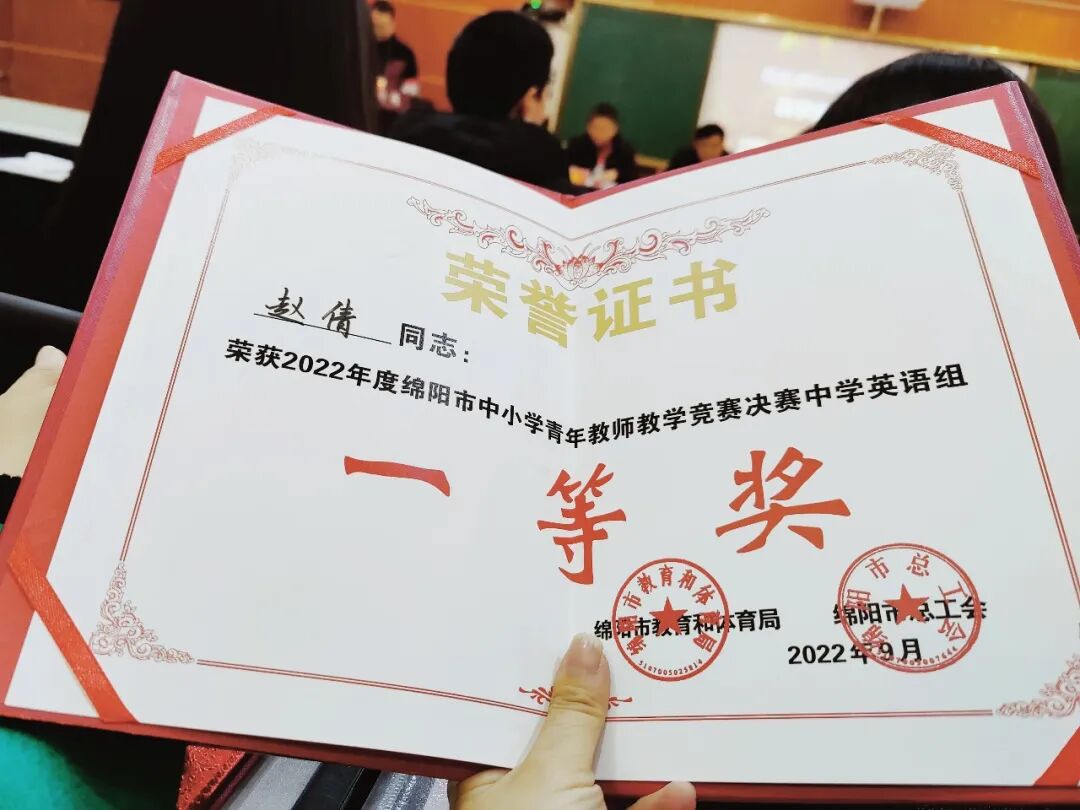 荣誉证书
赵倩 同志：
荣获2022年度绵阳市中小学青年教师教学竞赛决赛中学英语组
一等奖
绵阳市教育和体育局 绵阳市总工会
2022年9月
绵阳市教育和体育局
5107005025814
绵阳市总工会